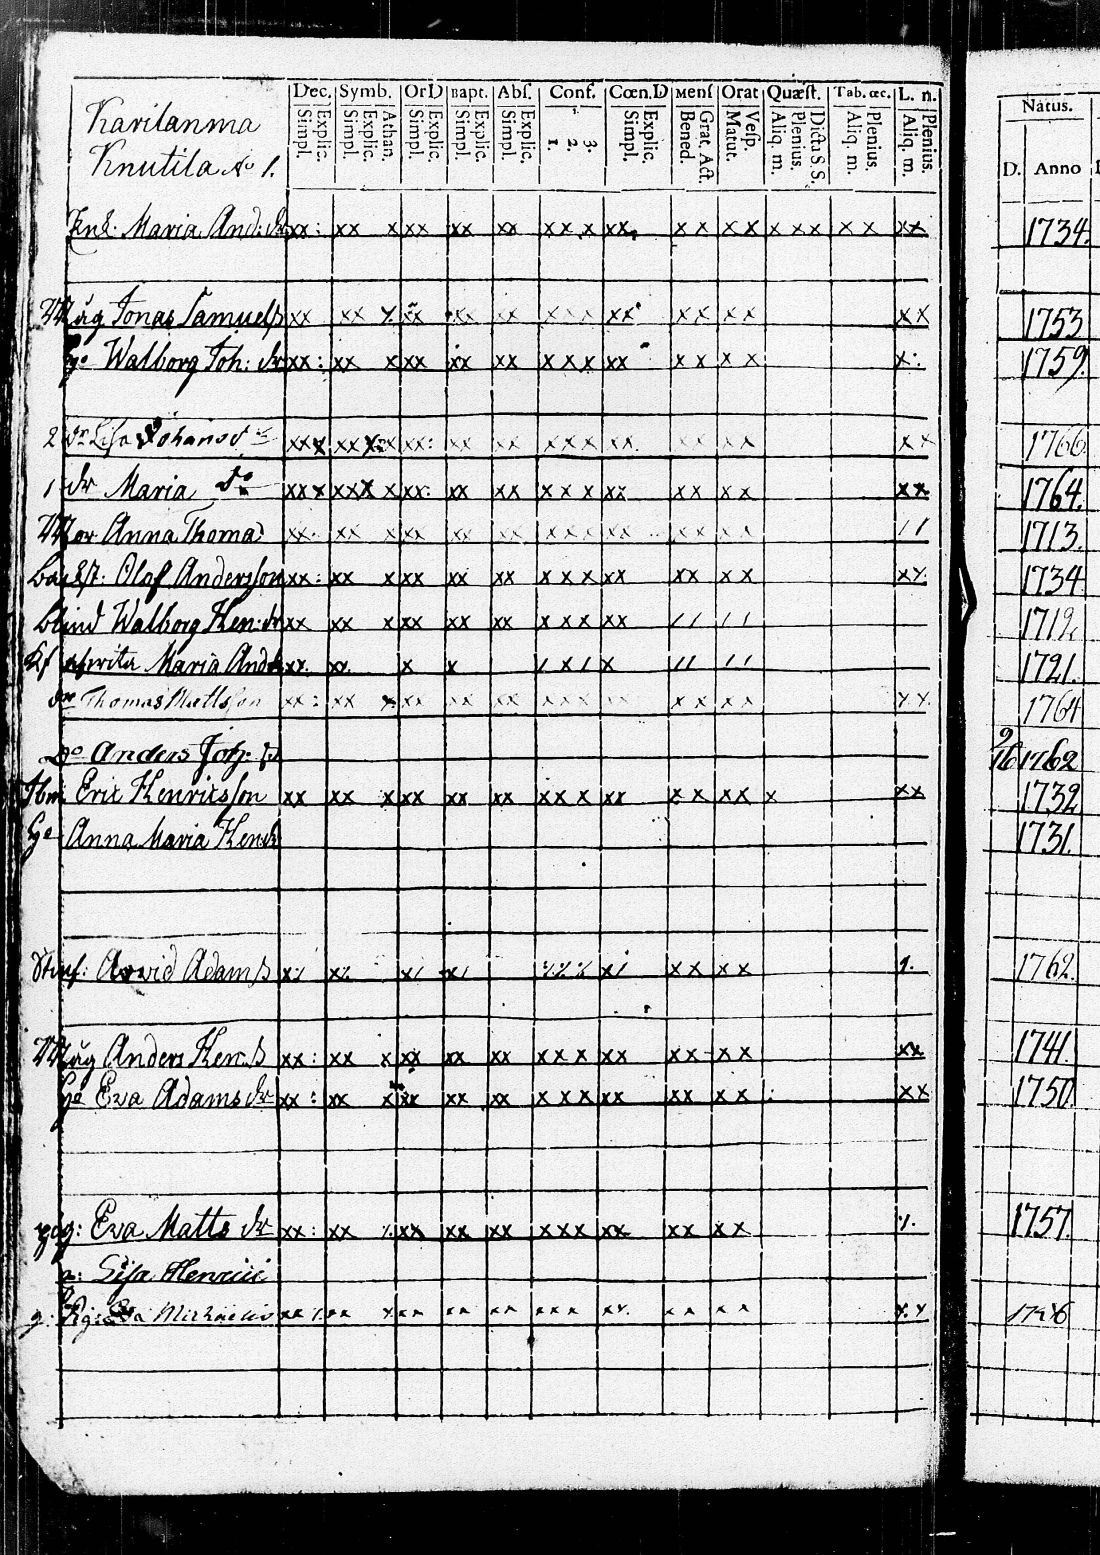 Karilanma
Knutila No 1.
Dec. Symb. Or D Bapt. Abs. Conf. Cœn.D Menſ Orat Quæſt. Tab. œc. L. n.
Simpl. Explic. Simpl. Explic. Athan. Simpl. Explic. Simpl. Explic. Simpl. Explic. 1. 2. 3. Simpl. Explic. Bened. Grat. Act. Matut. Veſp. Aliq. m. Plenius. Dicta S. S. Aliq. m. Plenius. Aliq. m. Plenius.
Natus.
D. Anno
Enk. Maria And: dr xx: xx x xx xx xx x x x xx x x x x x x x x x xx 1734.
Måg Jonas Samuelſs xx xx x xx xx xx x x x xx x x x x x x 1753
Ho Walborg Joh: dr xx: xx x xx xx xx x x x xx x x x x x: 1759.
2 dr Liſa Johansd xxx xxx x xx: xx xx x x x xx x x x x x x 1766
1 dr Maria Do xxx xxx x xx: xx xx x x x xx x x x x xx 1764.
Mor Anna Thomad xx xx x xx xx xx x x x xx x x x x / / 1713.
Olof Andersſon xx: xx x xx xx xx x x x xx xx x x x x 1734
blind Walborg Hen: dr xx xx x xx xx xx x x x xx / / / / 1712
Maria And xx xx x x / x / x / / / / 1721.
Thomas Mattsſon xx: xx x xx xx xx x x x xx x x x x x x. 1764
Do Anders Joh: ſs 9/16 1762
Eric Henricsſon xx xx x xx xx xx x x x xx x x x x x xx 1732
Ho Anna Maria Hendr 1731.
Arvid Adamſs x/ x/ x/ x/ x/ x x x x 1. 1762.
Måg Anders Hen: ſs xx: xx x xx xx xx x x x xx xx x x xx 1741.
Ho Eva Adams dr xx: xx x xx xx xx x x x xx xx x x x x 1750
pig: Eva Matts dr xx: xx x xx xx xx x x x xx xx x x 1757.
Liſa Henrici
Pig: Eva Michaelis xx xx x xx xx xx x x x xx x x x x x x